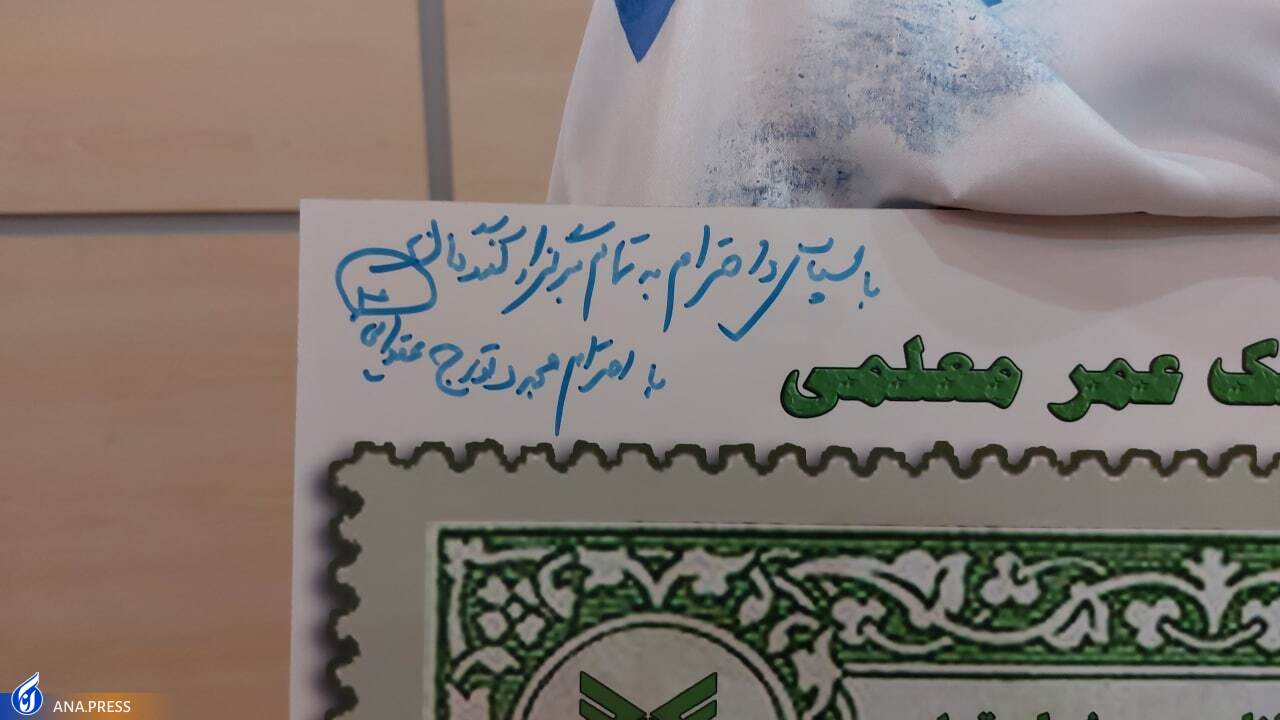 با سپاس و احترام به تمام برگزار کنندگان
با احترام
یک عمر معلمی
ANA.PRESS